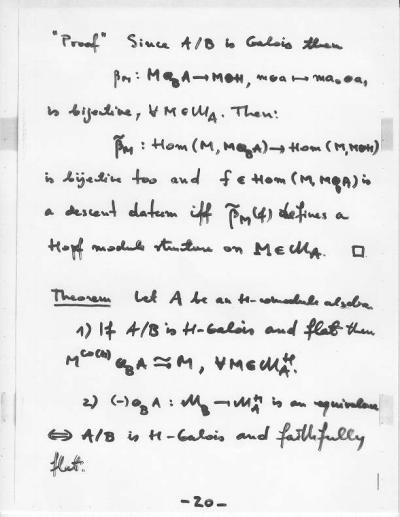 "Proof" Since A/B is Galois then
β_M : M⊗_B A → M⊗H, m⊗a ↦ ma₀⊗a₁
is bijective, ∀ M∈M_A. Then:
β̃_M : Hom(M, M⊗_B A) → Hom(M, M⊗H)
is bijective too and f ∈ Hom(M, M⊗_B A) is
a descent datum iff β̃_M(f) defines a
Hopf module structure on M∈M_A. □
Theorem Let A be an H-comodule algebra
1) If A/B is H-Galois and flat then
M^{co(H)} ⊗_B A ≅ M, ∀M∈M_A^H.
2) (-)⊗_B A : M_B → M_A^H is an equivalence
⇔ A/B is H-Galois and faithfully
flat.
-20-